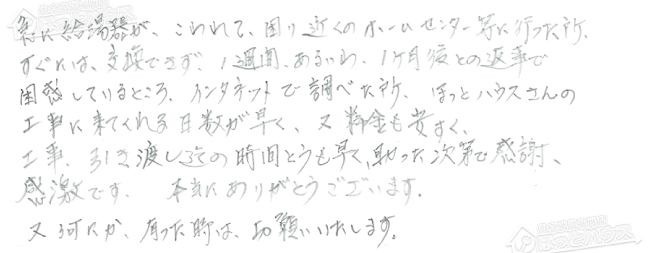 急に給湯器が、こわれて、困り近くのホームセンター等に行った所、
すぐには、交換できず、1週間、あるいわ、1ヶ月後との返事で
困惑しているところ、インタネットで調べた所、ほっとハウスさんの
工事に来てくれる日数が早く、又料金も貴すく、
工事、引き渡し迄の時間とうも早く、助った次第で感謝、
感激です。 本当にありがとうございます。
又何にか、有った時は、お願いいたします。